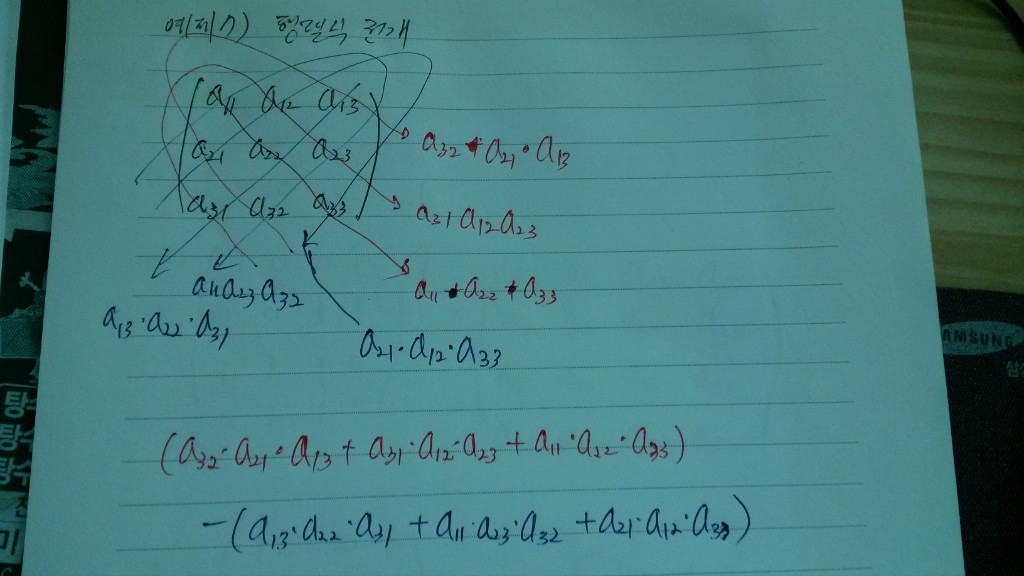 예제7) 행렬식 전개
a11 a12 a13
a21 a22 a23
a31 a32 a33
a32 · a21 · a13
a31 a12 a23
a11 · a22 · a33
a11 a23 a32
a13 · a22 · a31
a21 · a12 · a33
(a32 · a21 · a13 + a31 · a12 · a23 + a11 · a22 · a33)
-(a13 · a22 · a31 + a11 · a23 · a32 + a21 · a12 · a33)
SAMSUNG